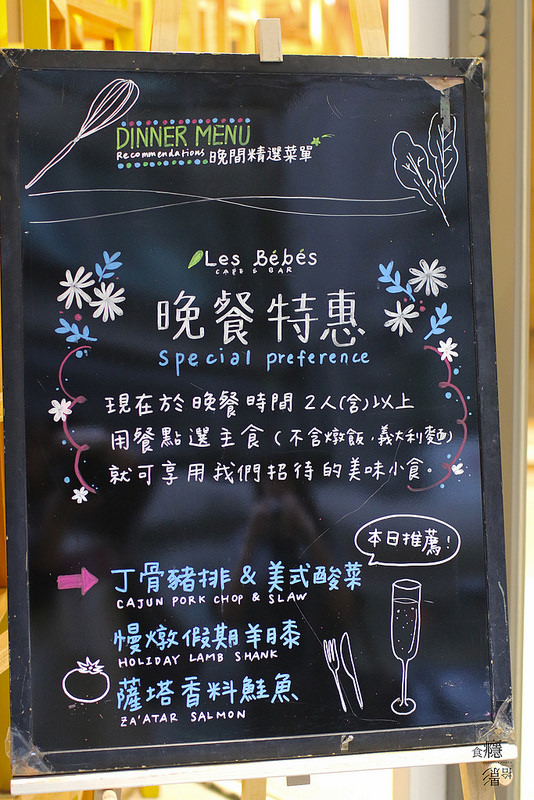 DINNER MENU
Recommendations 晚間精選菜單
Les Bébés
CAFE & BAR
晚餐特惠
Special preference
現在於晚餐時間 2人(含)以上
用餐點選主食(不含燉飯.義大利麵)
就可享用我們招待的美味小食。
本日推薦!
丁骨豬排 & 美式酸菜
CAJUN PORK CHOP & SLAW
慢燉假期羊膝
HOLIDAY LAMB SHANK
薩塔香料鮭魚
ZA'ATAR SALMON
食癮